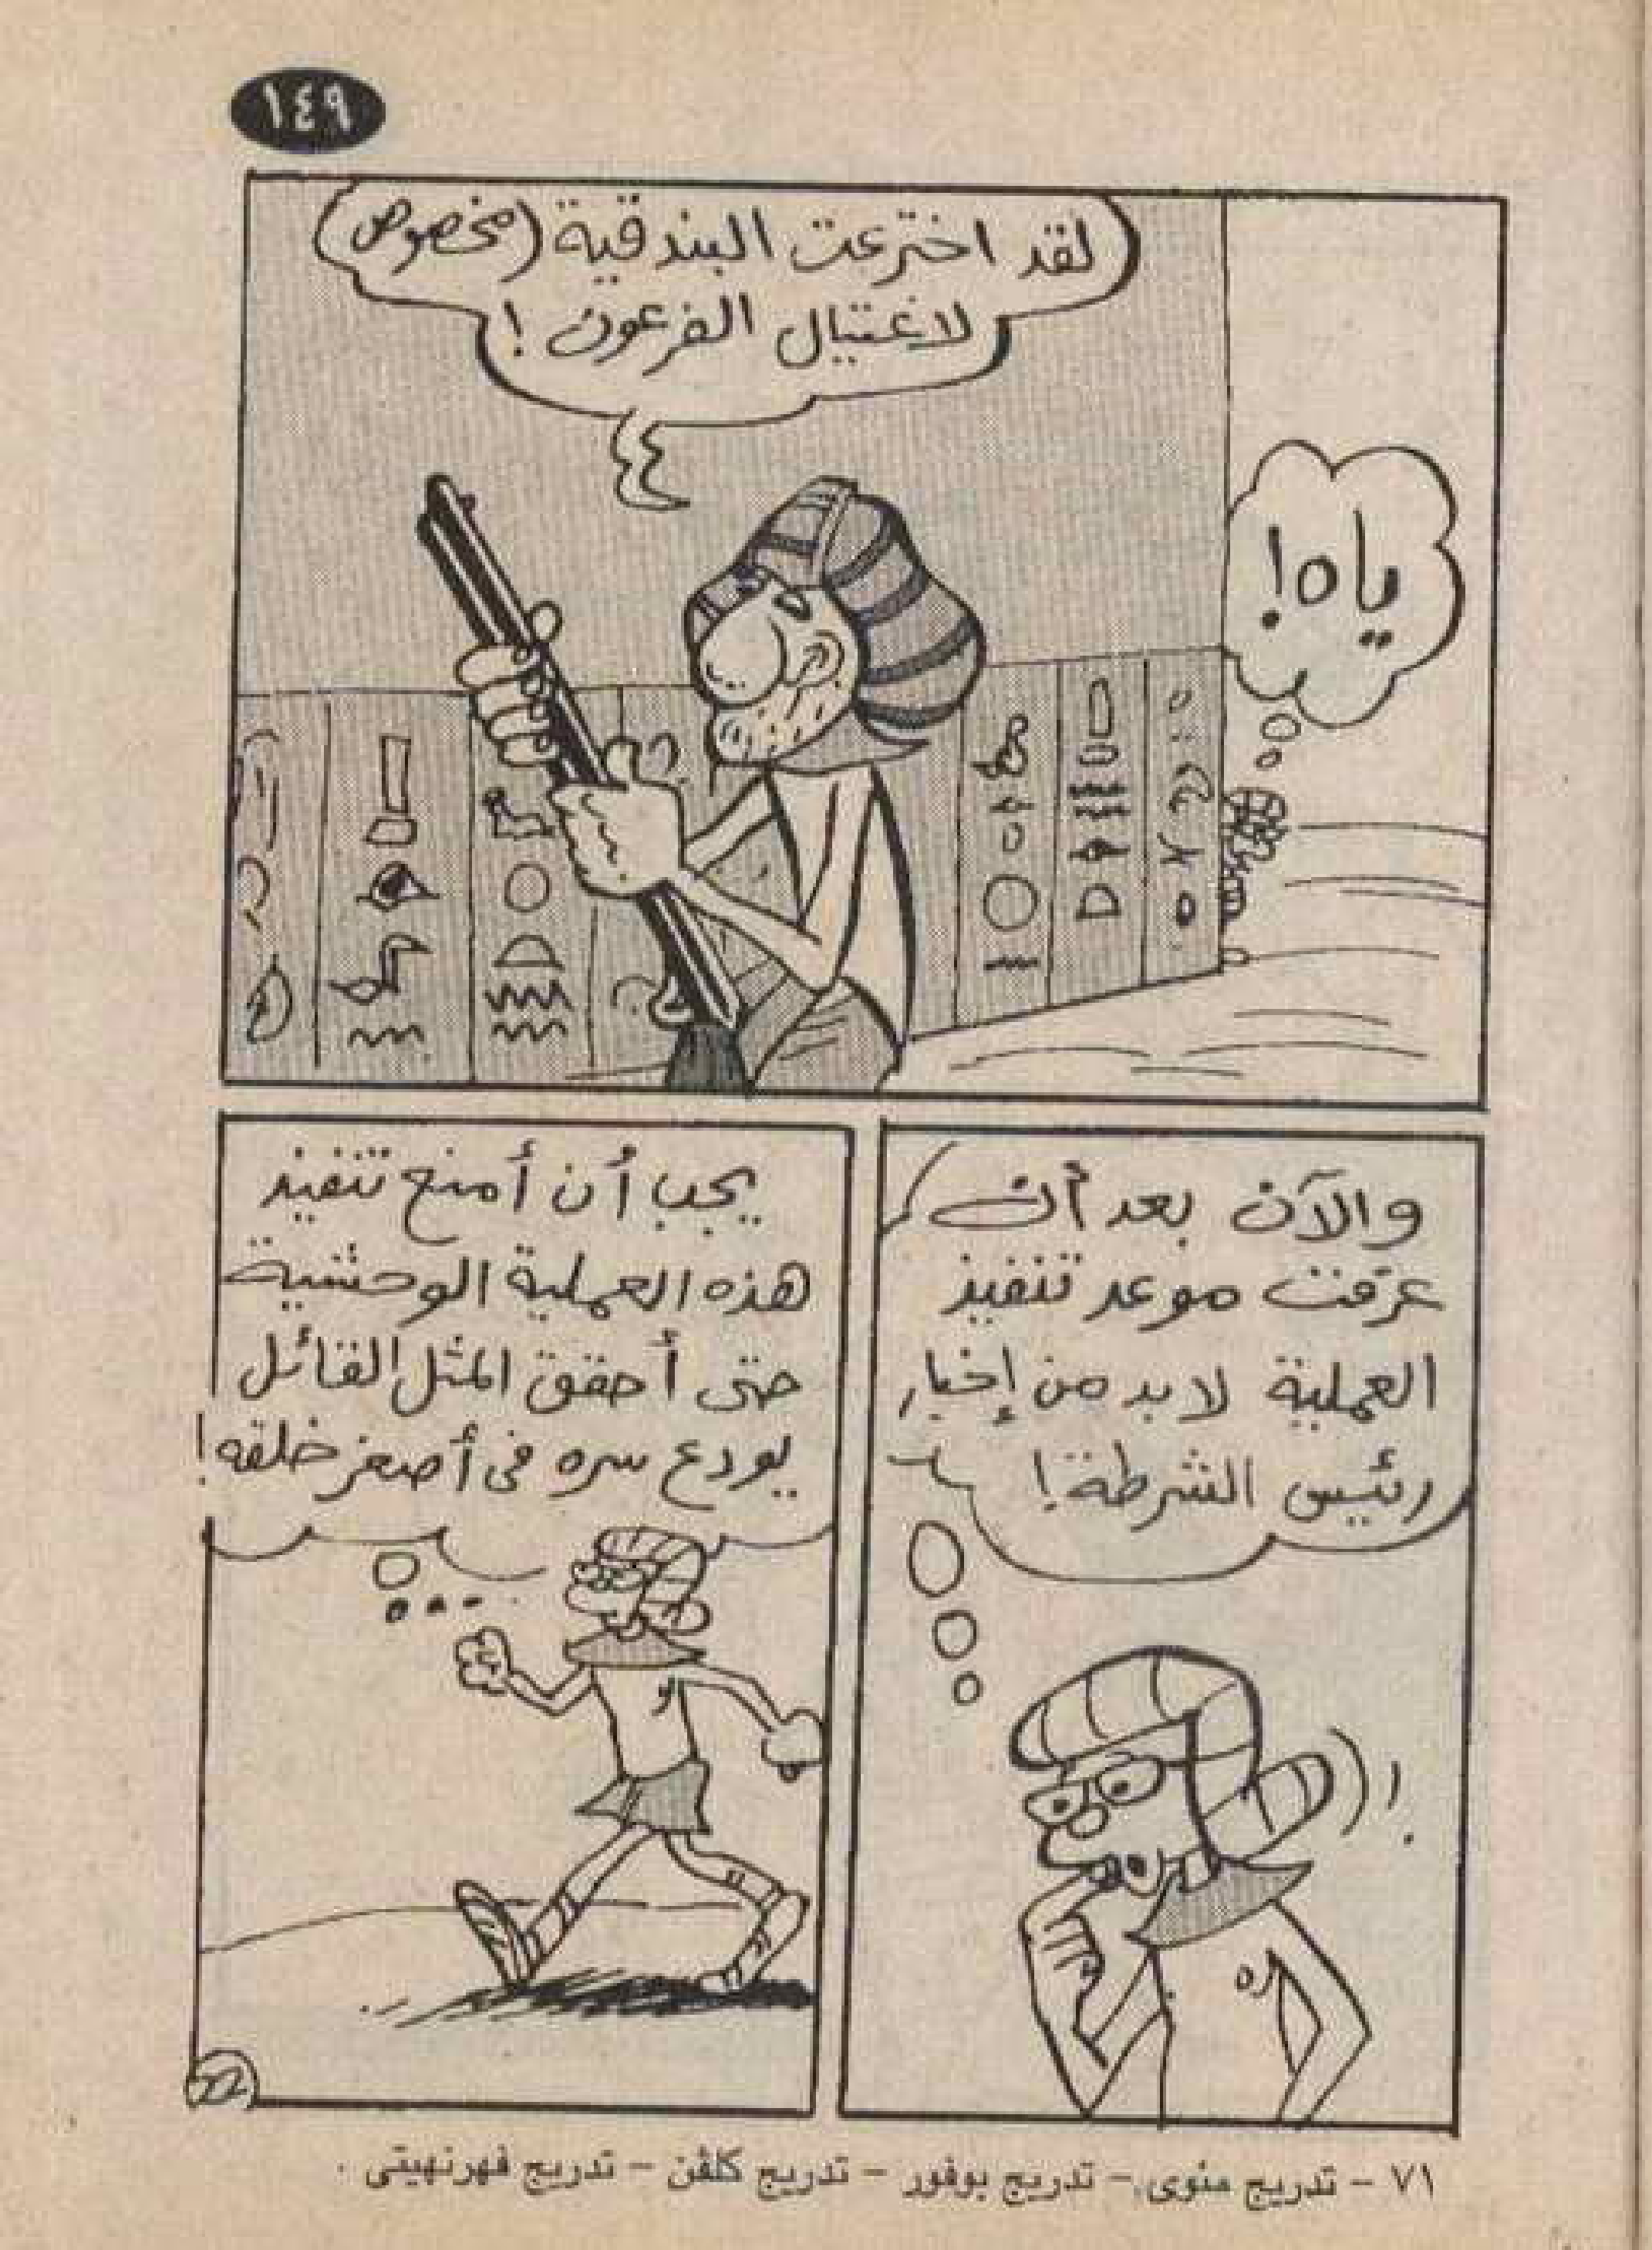 ١٤٩
لقد اخترعت البندقية (مخصوص)
لاغتيال الفرعون !
ياه!
والآن بعد أن
عرفت موعد تنفيذ
العملية لابد من إخبار
رئيس الشرطة!
يجب أن أمنع تنفيذ
هذه العملية الوحشية
حتى أحقق المثل القائل
يودع سره فى أصغر خلقه!
٧١ - تدريج مئوى - تدريج بوفور - تدريج كلفن - تدريج فهرنهيتى .